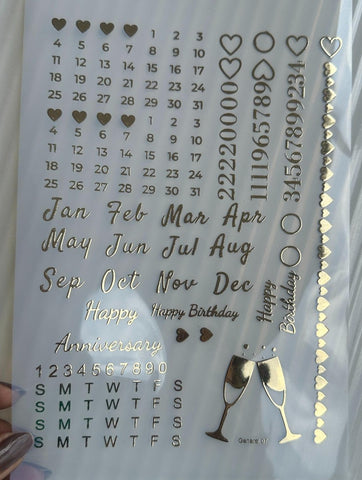 1 2 3
4 5 6 7 8 9 10
11 12 13 14 15 16 17
18 19 20 21 22 23 24
25 26 27 28 29 30 31
1 2 3
4 5 6 7 8 9 10
11 12 13 14 15 16 17
18 19 20 21 22 23 24
25 26 27 28 29 30 31
22220000
1111965789
34567899234
Jan Feb Mar Apr
May Jun Jul Aug
Sep Oct Nov Dec
Happy Happy Birthday
Happy
Birthday
Anniversary
1 2 3 4 5 6 7 8 9 0
S M T W T F S
S M T W T F S
S M T W T F S
S M T W T F S